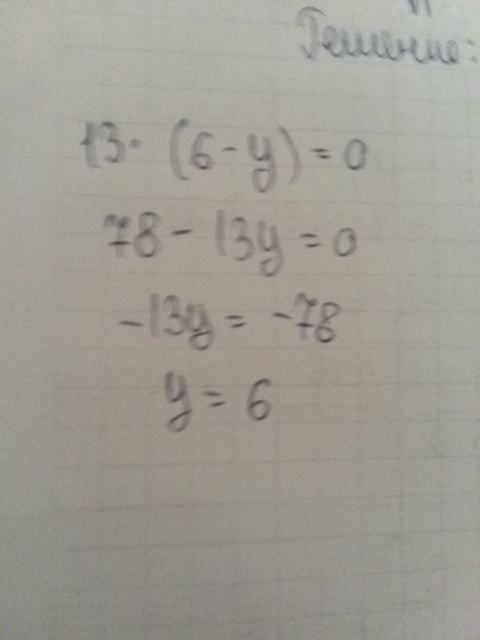 Решение:
13· (6-y)=0
78-13y=0
-13y=-78
y=6